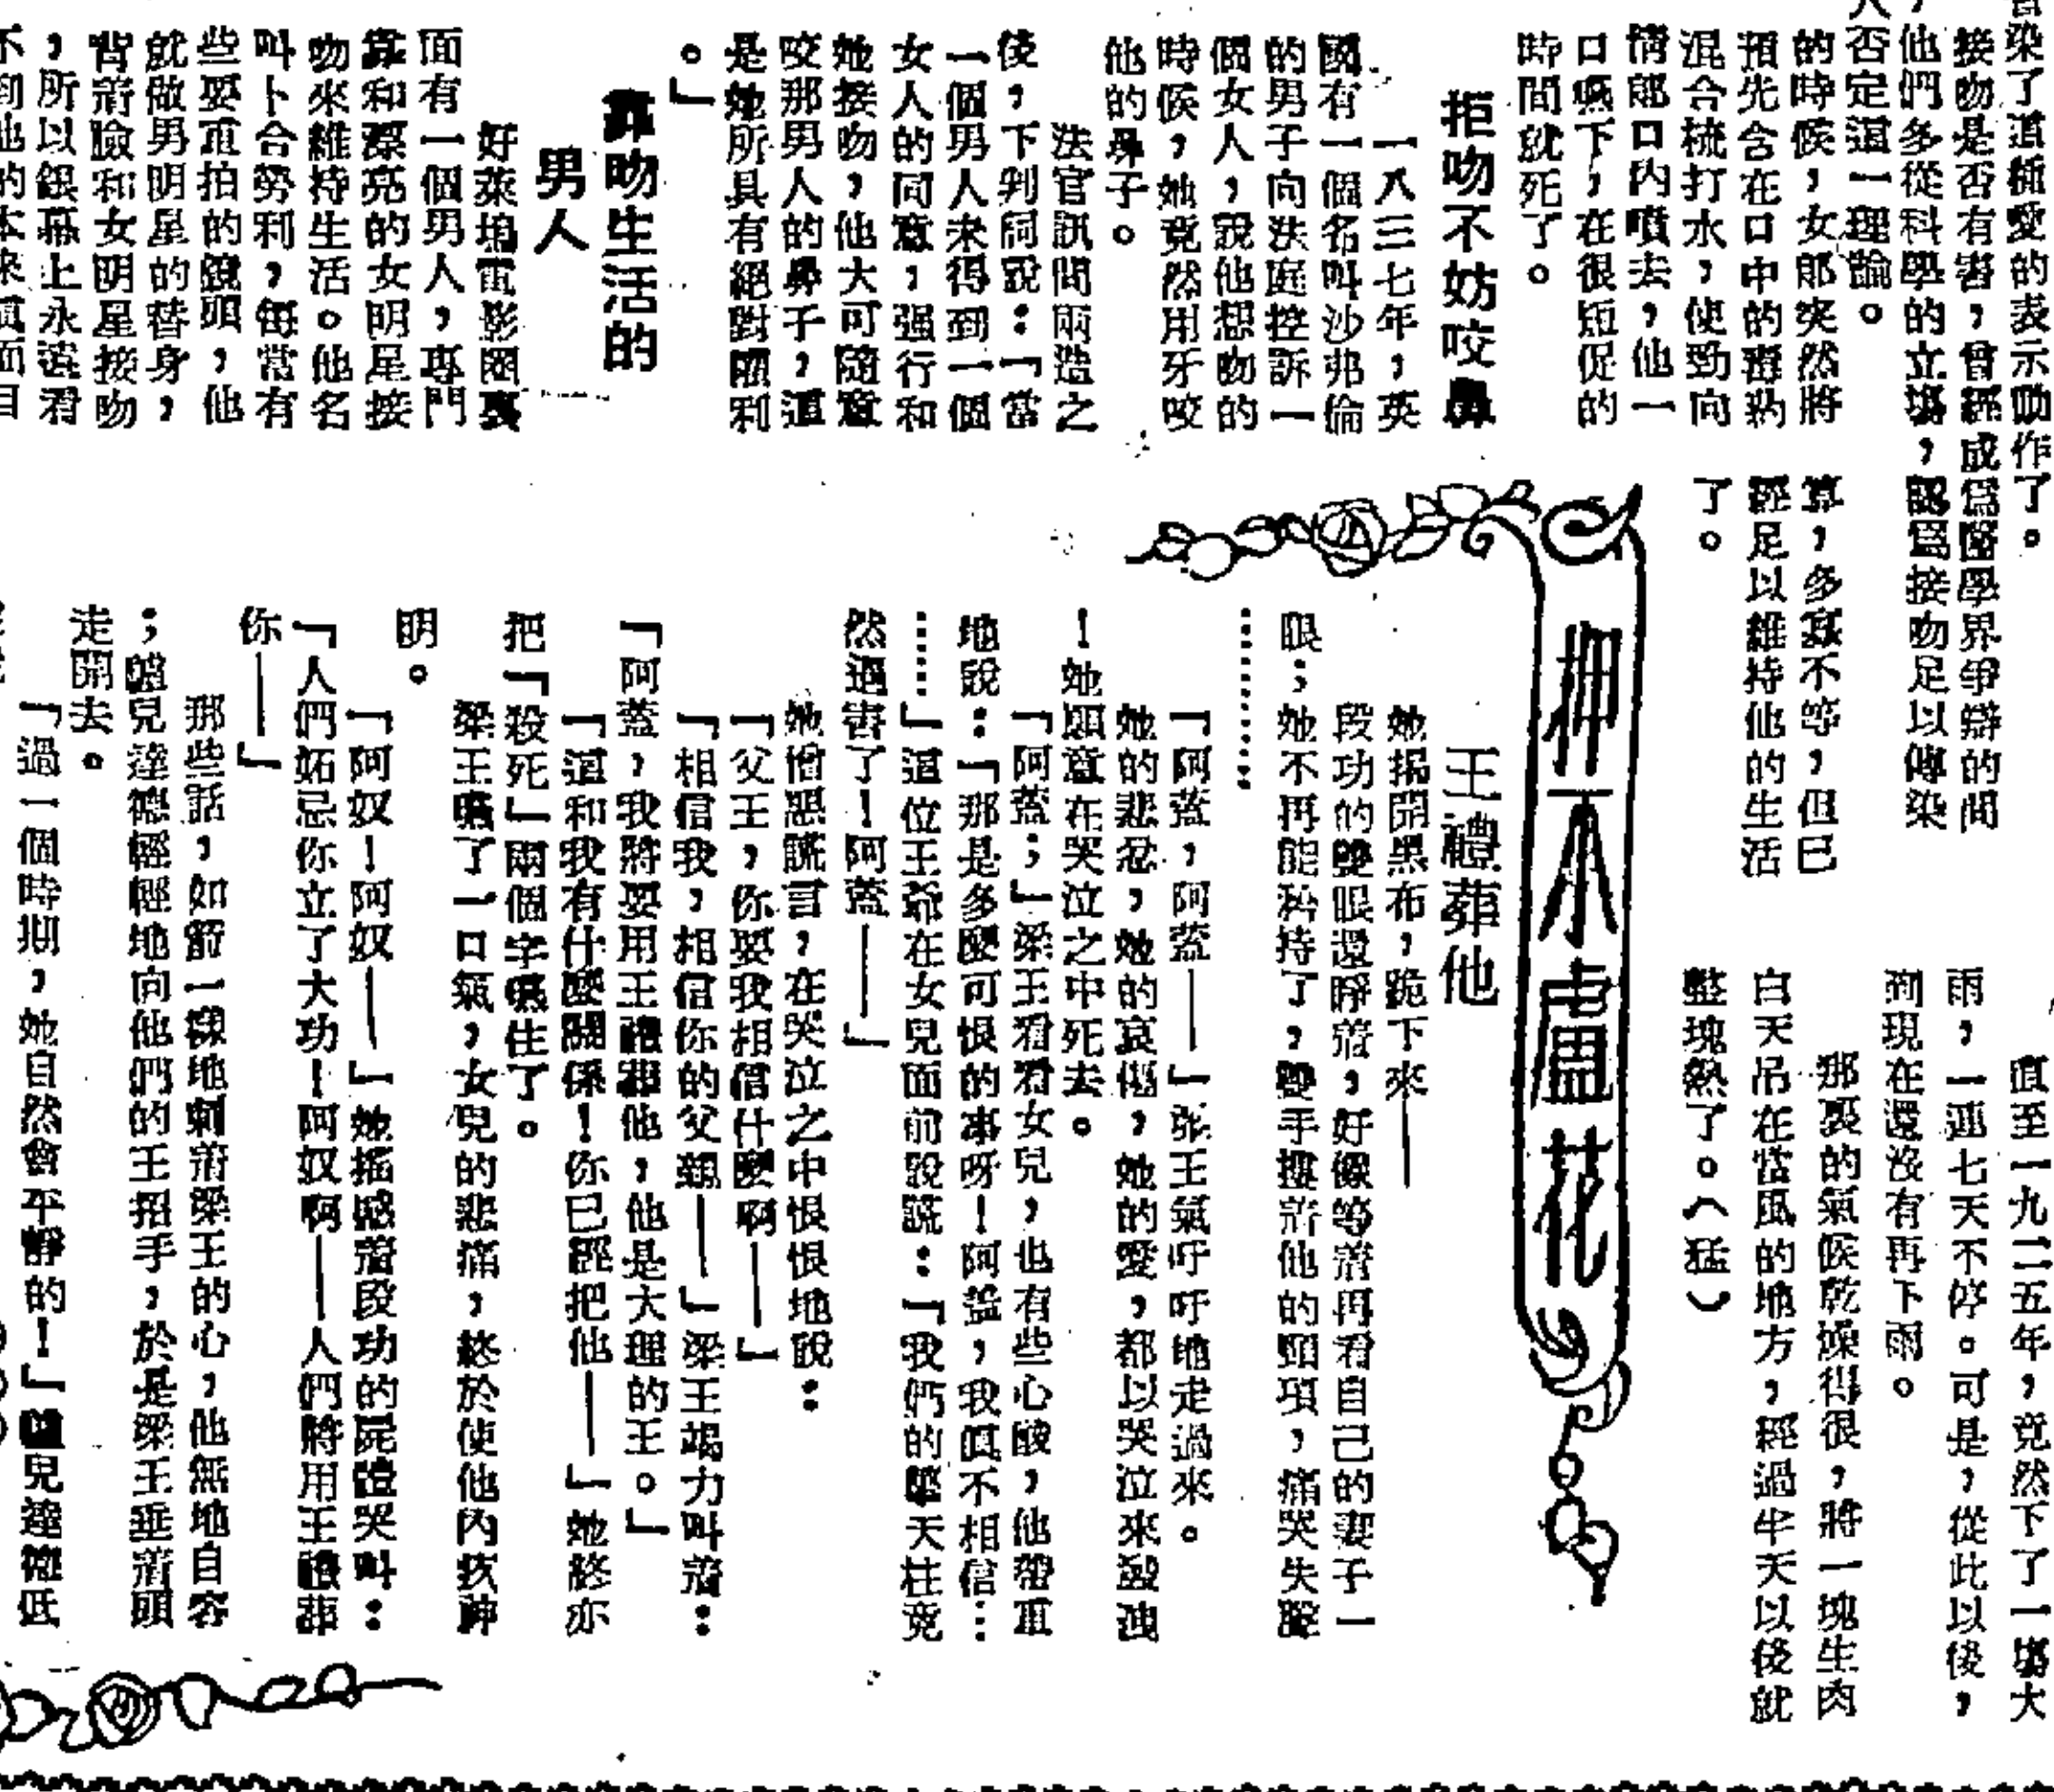 染了這種愛的表示動作了。
接吻是否有害，曾經成爲醫學界爭辯的問
，他們多從科學的立場，認爲接吻足以傳染
否定這一理論。
的時候，女郎突然將
預先含在口中的毒药
混合梳打水，使勁向
情郎口內噴去，他一
口嚥下，在很短促的
時間就死了。
拒吻不妨咬鼻
一八三七年，英
國有一個名叫沙弗倫
的男子向法庭控訴一
個女人，說他想吻的
時候，她竟然用牙咬
他的鼻子。
法官訊問兩造之
後，下判詞說：「當
一個男人未得到一個
女人的同意，强行和
她接吻，他大可隨意
咬那男人的鼻子，這
是她所具有絕對權利
。」
靠吻生活的
男人
好萊塢電影圈裏
面有一個男人，專門
靠和漂亮的女明星接
吻來維持生活。他名
叫卜合勞利，每當有
些要重拍的鏡頭，他
就做男明星的替身，
背着臉和女明星接吻
，所以銀幕上永遠看
不到他的本來眞面目
算，多寡不等，但已
經足以維持他的生活
了。
直至一九二五年，竟然下了一塲大
雨，一連七天不停。可是，從此以後，
到現在還沒有再下雨。
那裏的氣候乾燥得很，將一塊生肉
白天吊在當風的地方，經過半天以後就
整塊熱了。（猛）
押不盧花
王禮葬他
她揭開黑布，跪下來——
段功的雙眼還睜着，好像等着再看自己的妻子一
眼；她不再能矜持了，雙手摟着他的頸項，痛哭失聲
………
「阿蓋，阿蓋——」梁王氣吁吁地走過來。
她的悲忿，她的哀傷，她的愛，都以哭泣來發洩
！她願意在哭泣之中死去。
「阿蓋；」梁王看着女兒，也有些心酸，他鄭重
地說：「那是多麼可恨的事呀！阿蓋，我眞不相信…
……」這位王爺在女兒面前說謊：「我們的擎天柱竟
然遇害了！阿蓋——」
她憎惡謊言，在哭泣之中恨恨地說：
「父王，你要我相信什麼啊——」
「相信我，相信你的父親——」梁王竭力叫着：
「阿蓋，我將要用王禮葬他，他是大理的王。」
「這和我有什麼關係！你已經把他——」她終亦
把「殺死」兩個字嚥住了。
梁王嘆了一口氣，女兒的悲痛，終於使他內疚神
明。
「阿奴！阿奴——」她搖撼着段功的屍體哭叫：
「人們妬忌你立了大功！阿奴啊——人們將用王禮葬
你——」
那些話，如箭一樣地刺着梁王的心，他無地自容
；驢兒達德輕輕地向他們的王招手，於是梁王垂着頭
走開去。
「過一個時期，她自然會平靜的！」驢兒達德低